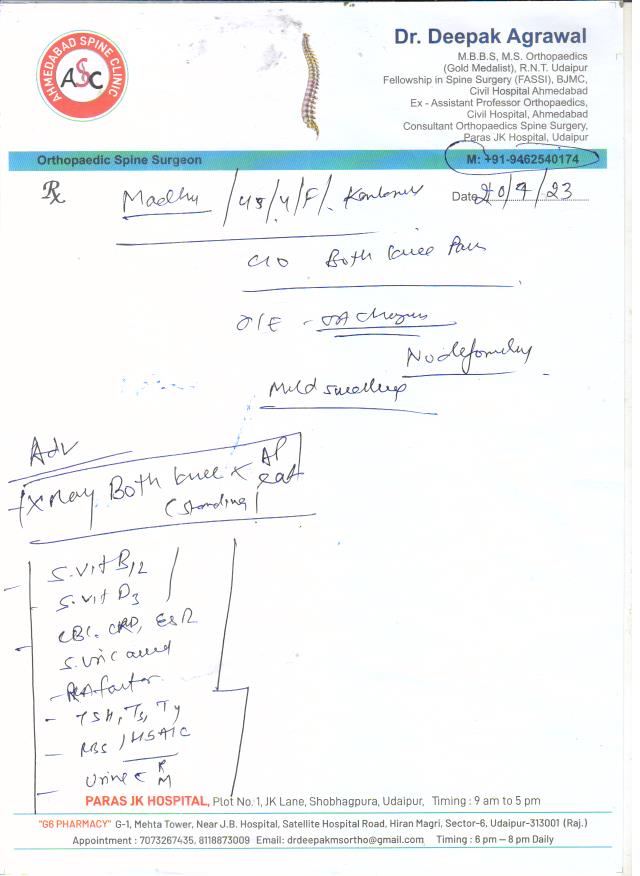 AHMEDABAD SPINE CLINIC
ASC
Dr. Deepak Agrawal
M.B.B.S, M.S. Orthopaedics
(Gold Medalist), R.N.T. Udaipur
Fellowship in Spine Surgery (FASSI), BJMC,
Civil Hospital Ahmedabad
Ex - Assistant Professor Orthopaedics,
Civil Hospital, Ahmedabad
Consultant Orthopaedics Spine Surgery,
Paras JK Hospital, Udaipur
Orthopaedic Spine Surgeon
M: +91-9462540174
Rx
Madhu / 45 / Y / F /.
Date 20/7/23
C/O Both knee Pain
O/E - OA changes
No deformity
Mild swelling
Adv
X ray Both knee < AP
Lat
(standing)
S. Vit B12
S. Vit D3
CBC, CRP, ESR
S. Uric acid
- RA factor
- TSH, T3, T4
- RBS / HbA1C
Urine < R
M
PARAS JK HOSPITAL, Plot No. 1, JK Lane, Shobhagpura, Udaipur, Timing : 9 am to 5 pm
"G6 PHARMACY" G-1, Mehta Tower, Near J.B. Hospital, Satellite Hospital Road, Hiran Magri, Sector-6, Udaipur-313001 (Raj.)
Appointment : 7073267435, 8118873009 Email: drdeepakmsortho@gmail.com Timing : 6 pm – 8 pm Daily